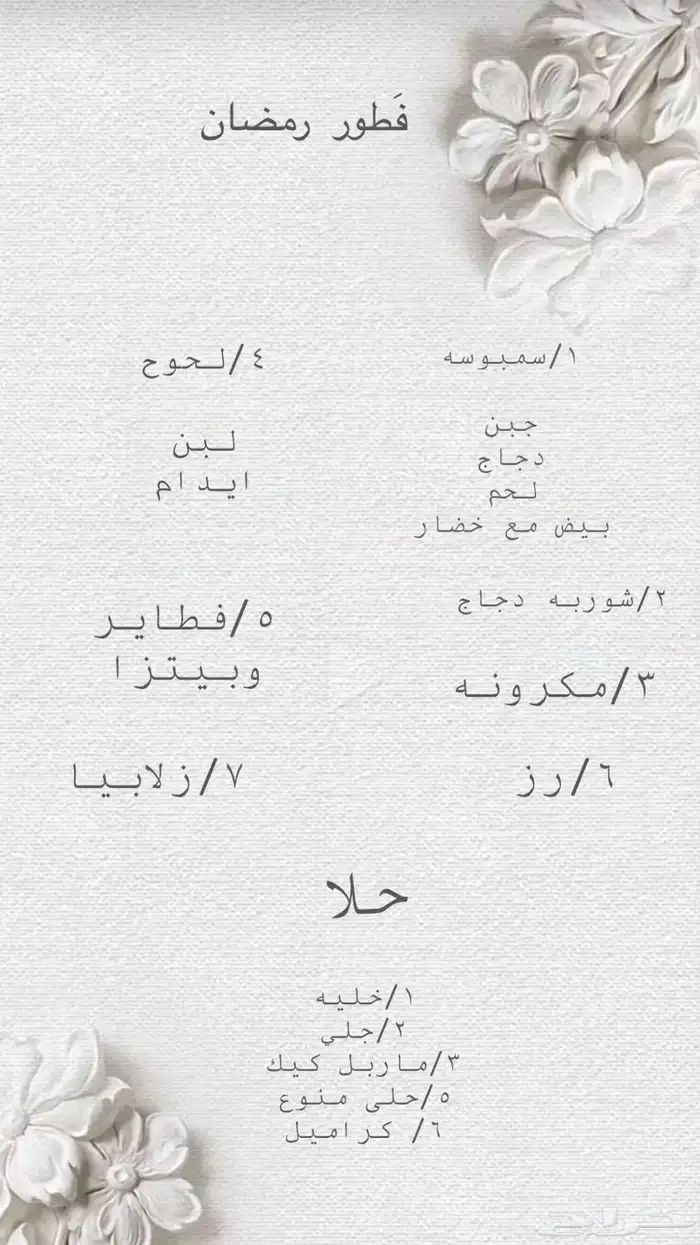 فَطور رمضان
١/سمبوسه
جبن
دجاج
لحم
بيض مع خضار
٢/شوربه دجاج
٣/مكرونه
٤/لحوح
لبن
ايدام
٥/فطاير
وبيتزا
٦/رز
٧/زلابيا
حلا
١/خليه
٢/جلي
٣/ماربل كيك
٥/حلى منوع
٦/ كراميل
حراج